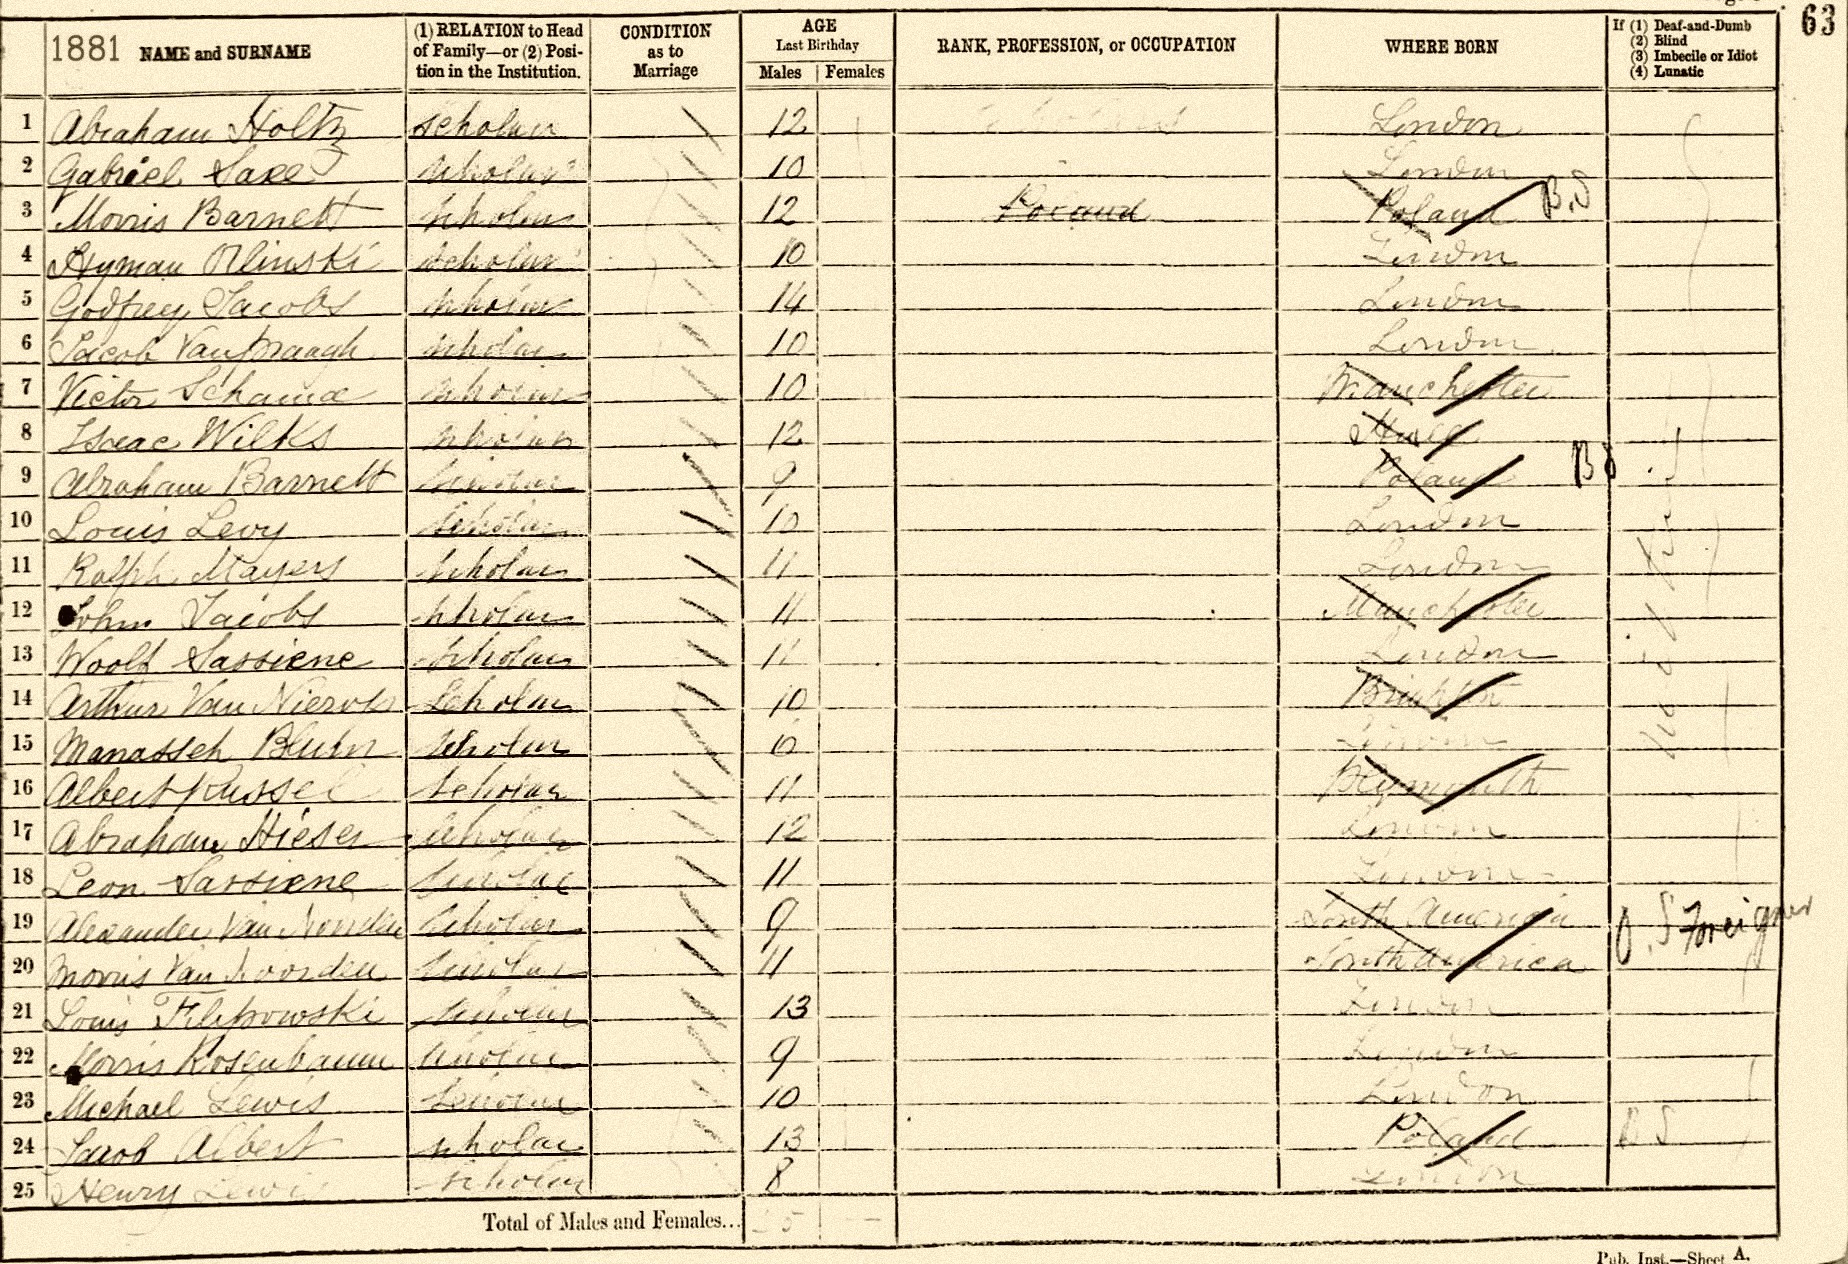 63
1881 NAME and SURNAME (1) RELATION to Head of Family—or (2) Position in the Institution. CONDITION as to Marriage AGE Last Birthday Males Females RANK, PROFESSION, or OCCUPATION WHERE BORN If (1) Deaf-and-Dumb (2) Blind (3) Imbecile or Idiot (4) Lunatic
1 Abraham Holtz scholar 12 London
2 Gabriel scholar 10 London
3 Morris Barnett scholar 12 Poland Poland B.S
4 Hyman scholar 10 London
5 Godfrey Jacobs scholar 14 London
6 Jacob Van praagh scholar 10 London
7 Victor Schama scholar 10 Manchester
8 Isaac Wilks scholar 12 Hull
9 Abraham Barnett scholar 9 Poland B S
10 Louis Levy scholar 10 London
11 Ralph Mayers scholar 11 London
12 John Jacobs scholar 11 Manchester
13 Woolf Sassiene scholar 11 London
14 Arthur Van Nierop scholar 10 Brighton
15 Manasseh Bluhm scholar London
16 Albert Russel scholar 11 Plymouth
17 Abraham Hieser scholar 12 London
18 Leon Sassiene scholar 11 London
19 Alexander Van Norden scholar 9 South America B.S Foreigner
20 Morris Van Noorden scholar 11 South America
21 Louis Filipowski scholar 13 London
22 Morris Rosenbaum scholar 9 London
23 Michael Lewis scholar 10 London
24 Jacob Albert scholar 13 Poland B S
25 Henry Lewis scholar 8 London
Total of Males and Females... 25 —
Pub. Inst.—Sheet A.